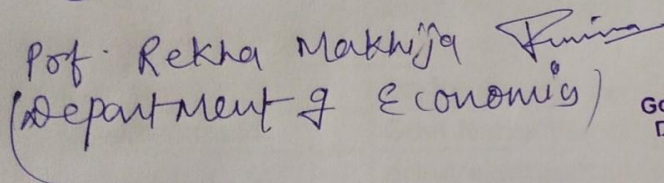 Prof. Rekha Makhija
(Department of Economics)
GO
D